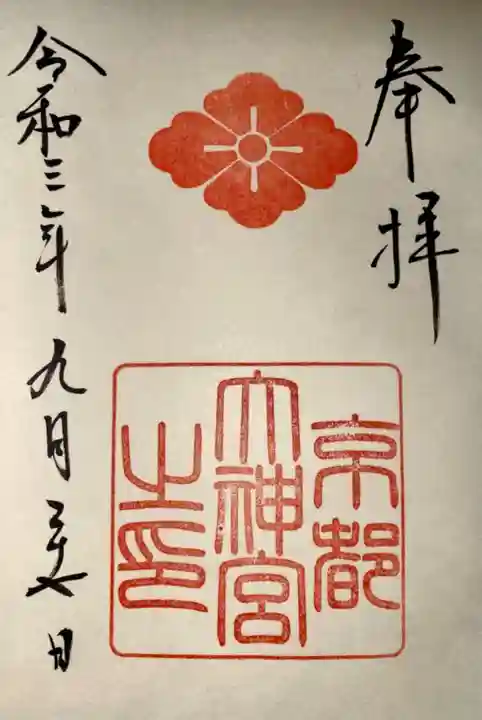 奉拝
京都
大神宮
之印
令和三年九月日